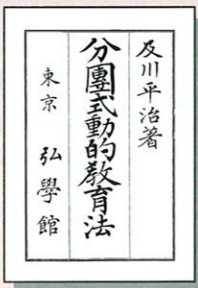 及川平治著
分團式動的教育法
東京 弘學館